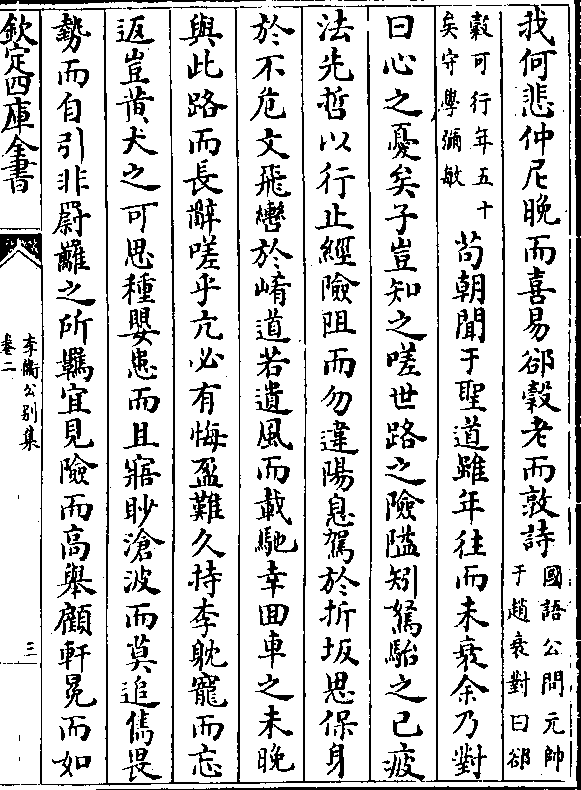 我何悲仲尼晚而喜易郤縠老而敦詩國語公問元帥
于趙衰對曰郤
縠可行年五十
矣守學彌敏
苟朝聞于聖道雖年往而未衰余乃對
曰心之憂矣子豈知之嗟世路之險隘矧駑駘之已疲
法先哲以行止經險阻而勿違陽息駕於折坂思保身
於不危文飛轡於崤道若遺風而載馳幸回車之未晚
與此路而長辭嗟乎亢必有悔盈難久持李躭寵而忘
返豈黄犬之可思種嬰患而且寤眇滄波而莫追雋畏
勢而自引非罻羅之所羈宜見險而高舉顧軒冕而如
欽定四庫全書
李衛公別集
卷二
三